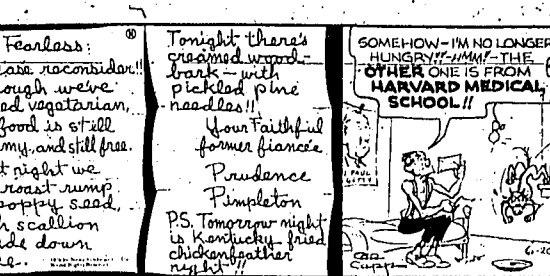 Fearless:
reconsider!!
we've
vegetarian,
food is still
and still free.
night we
roast rump
poppy seed,
scallion
down
Tonight there's
creamed wood-
bark — with
pickled pine
needles!!
Your Faithful
former fiancée
Prudence
Pimpleton
P.S. Tomorrow night
is Kentucky fried
chickenfeather
night!!
SOMEHOW—I'M NO LONGER
HUNGRY!!-HMM!-THE
OTHER ONE IS FROM
HARVARD MEDICAL
SCHOOL!!
PAUL
CAPP
6-20